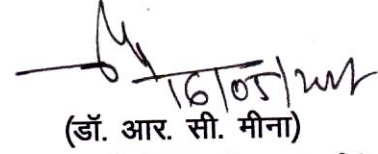 16/05/
(डॉ. आर. सी. मीना)